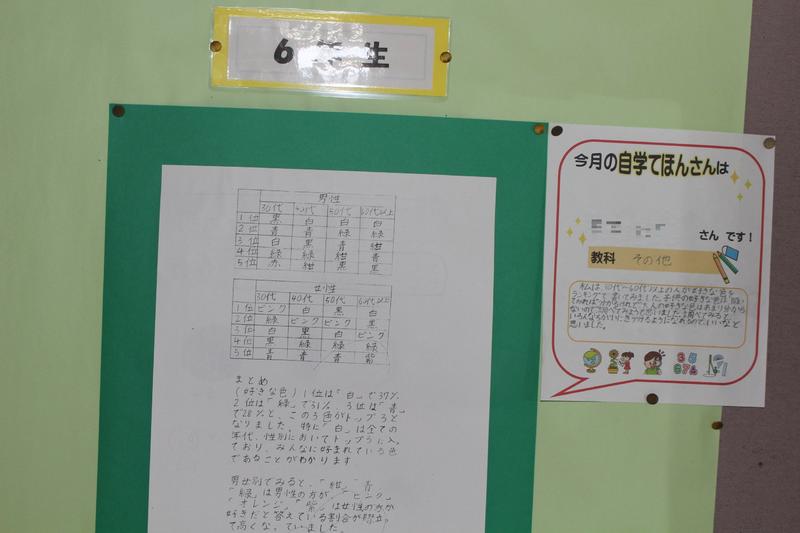 6年生
男性
30代 40代 50代 60代以上
1位 黒 白 白 白
2位 青 青 緑 緑
3位 白 黒 青 紺
4位 緑 緑 紺 青
5位 赤 紺 黒 黒
女性
30代 40代 50代 60代以上
1位 ピンク 白 黒 白
2位 緑 ピンク ピンク 黒
3位 白 黒 白 ピンク
4位 黒 緑 緑 緑
5位 青 青 青 紫
まとめ
(好きな色)1位は「白」で37%
2位は「緑」で31%、3位は「青」
で28%と、この3色がトップ3と
なりました。特に「白」は全ての
年代、性別においてトップ3に入っ
ており、みんなに好まれている色
であることがわかります
男女別でみると、「紺」「青」
「緑」は男性の方が、「ピンク」
「オレンジ」「紫」は女性の方が
好きだと答えている割合が際立っ
て高くなっていました。
今月の自学てほんさんは
さん です!
教科 その他
私は、30代~60代以上の人が好きな色を
ランキングで書いてみました。子供の好きな色は
大人の好きな色はあまり分から
ないので調べてみようと思いました。調べてみると
いろんな
思いました。